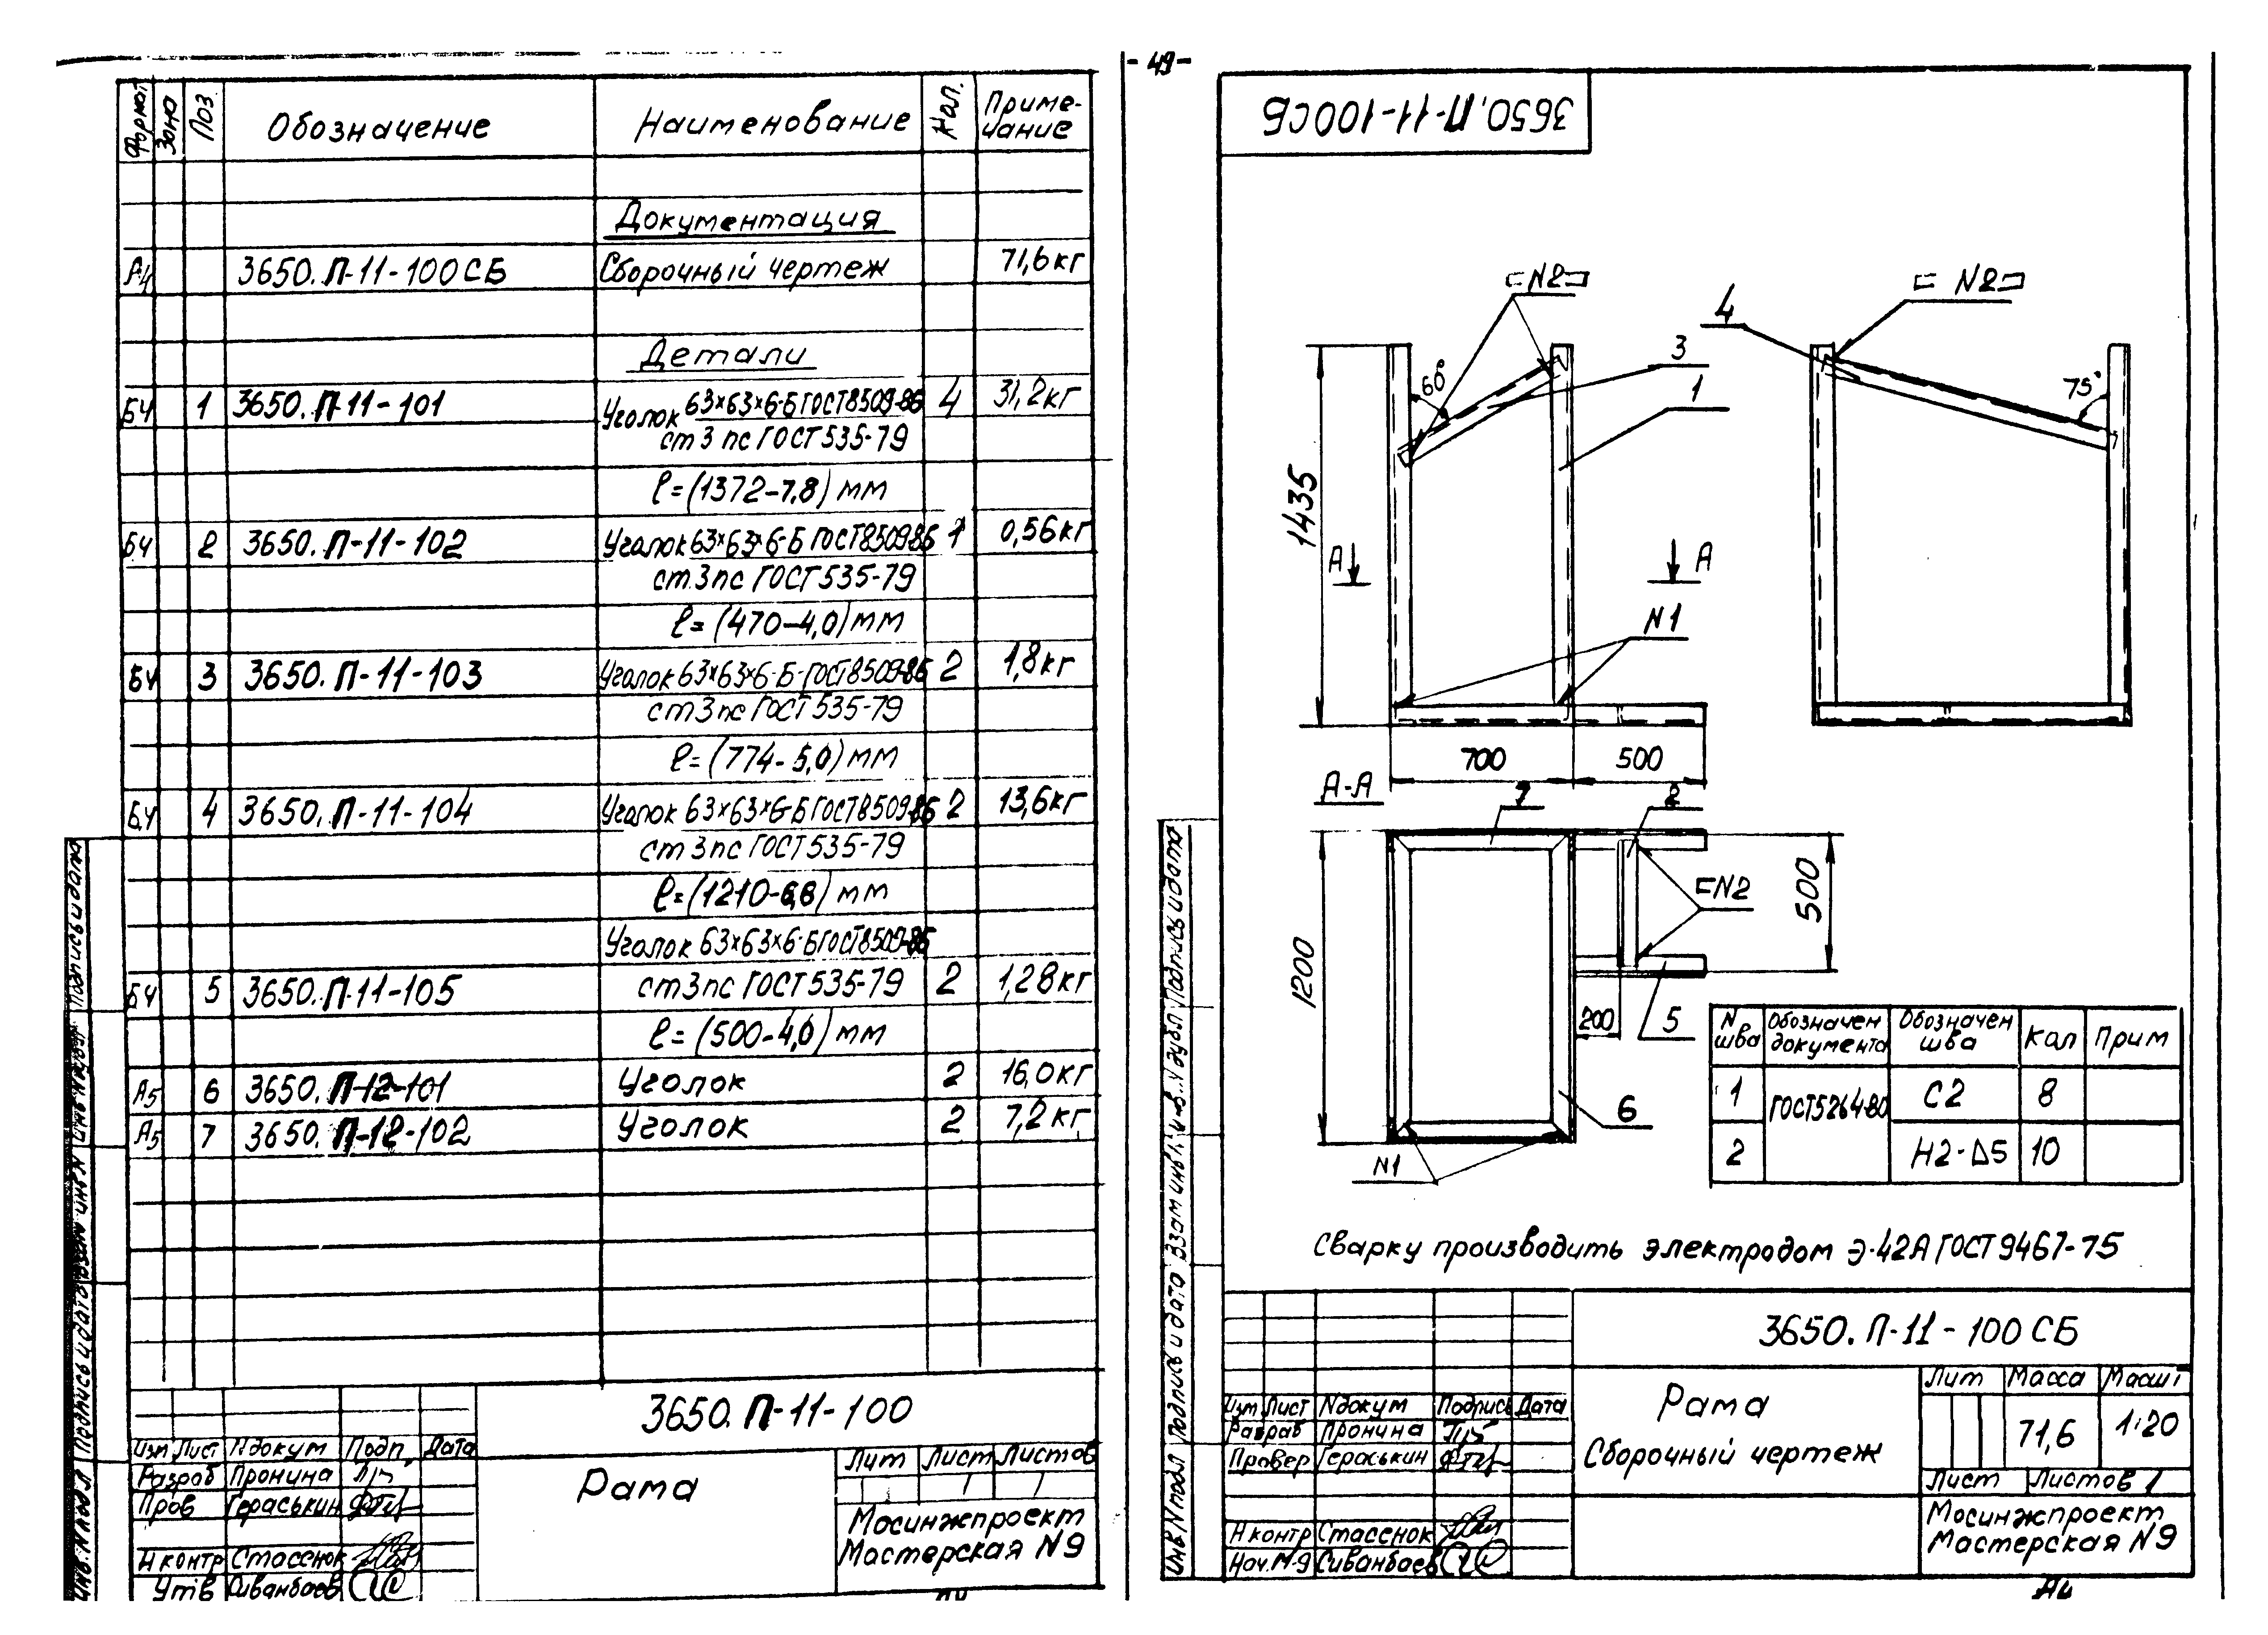 - 49 -
Формат
Зона
Поз.
Обозначение
Наименование
Кол.
Приме-
чание
Документация
А4 3650.П-11-100СБ Сборочный чертеж 71,6кг
Детали
БЧ 1 3650.П-11-101 Уголок 63×63×6-Б ГОСТ8509-86 4 31,2кг
ст 3 пс ГОСТ 535-79
ℓ=(1372-7,8) мм
БЧ 2 3650.П-11-102 Уголок 63×63×6-Б ГОСТ8509-86 1 0,56кг
ст.3пс ГОСТ 535-79
ℓ=(470-4,0) мм
БЧ 3 3650.П-11-103 Уголок 63×63×6-Б-ГОСТ8509-86 2 1,8кг
ст3пс ГОСТ 535-79
ℓ=(774-5,0) мм
БЧ 4 3650.П-11-104 Уголок 63×63×6-Б ГОСТ8509-86 2 13,6кг
ст 3пс ГОСТ 535-79
ℓ=(1210-6,8) мм
Уголок 63×63×6-Б ГОСТ8509-86
БЧ 5 3650.П-11-105 ст3пс ГОСТ 535-79 2 1,28кг
ℓ=(500-4,0) мм
А5 6 3650.П-12-101 Уголок 2 16,0кг
А5 7 3650.П-12-102 Уголок 2 7,2кг
Подпись и дата
Взам инв N
Подпись и дата
Инв. N подл
3650.П-11-100
Изм Лист Nдокум Подп. Дата
Разраб Пронина
Пров Гераськин
Н контр Стасенок
Утв Сиванбаев
Рама
Лит Лист Листов
1 1
Мосинжпроект
Мастерская N9
3650.П-11-100СБ
⊏N2⊐
⊏ N2⊐
4
3
1
60°
75°
1435
А
А
N1
700
500
А-А
7
2
⊏N2
500
1200
200
5
6
N1
N шва Обозначен документа Обозначен шва Кол Прим
1 ГОСТ5264-80 С2 8
2 Н2-⊿5 10
Сварку производить электродом Э-42А ГОСТ 9467-75
Подпись и дата
Взам инв N
Подпись и дата
Инв N подл
3650.П-11-100 СБ
Изм Лист Nдокум Подпись Дата
Разраб Пронина
Провер Гераськин
Н контр Стасенок
Нач.М-9 Сиванбаев
Рама
Сборочный чертеж
Лит Масса Масшт
71,6 1:20
Лист Листов 1
Мосинжпроект
Мастерская N9
А4